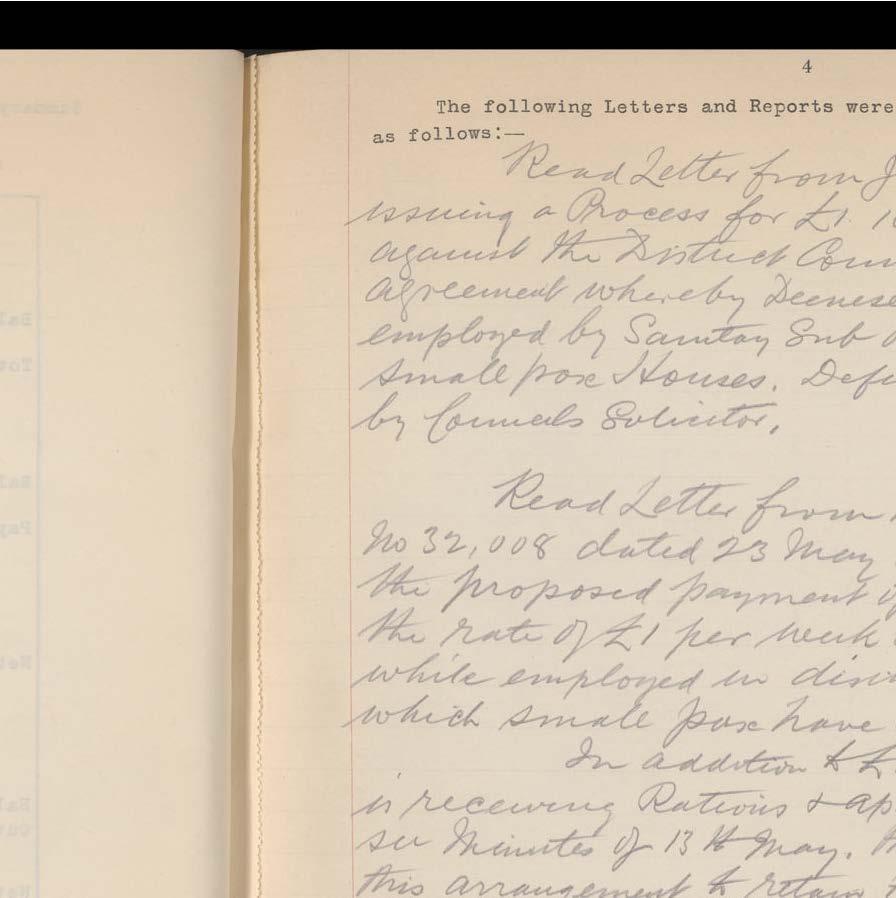 4
The following Letters and Reports were
as follows:—
Read Letter from J
issuing a Process for £1. 1
against the District Coun
agreement whereby Deenese
employed by Sanitay Sub
small pox Houses. Defe
by Councils Solicitor.
Read Letter from
No 32,008 dated 23 May
the proposed payment of
the rate of £1 per week
while employed in disin
which small pox have
In addition to £
is receiving Rations & ap
see Minutes of 13th May.
this arrangement to retain